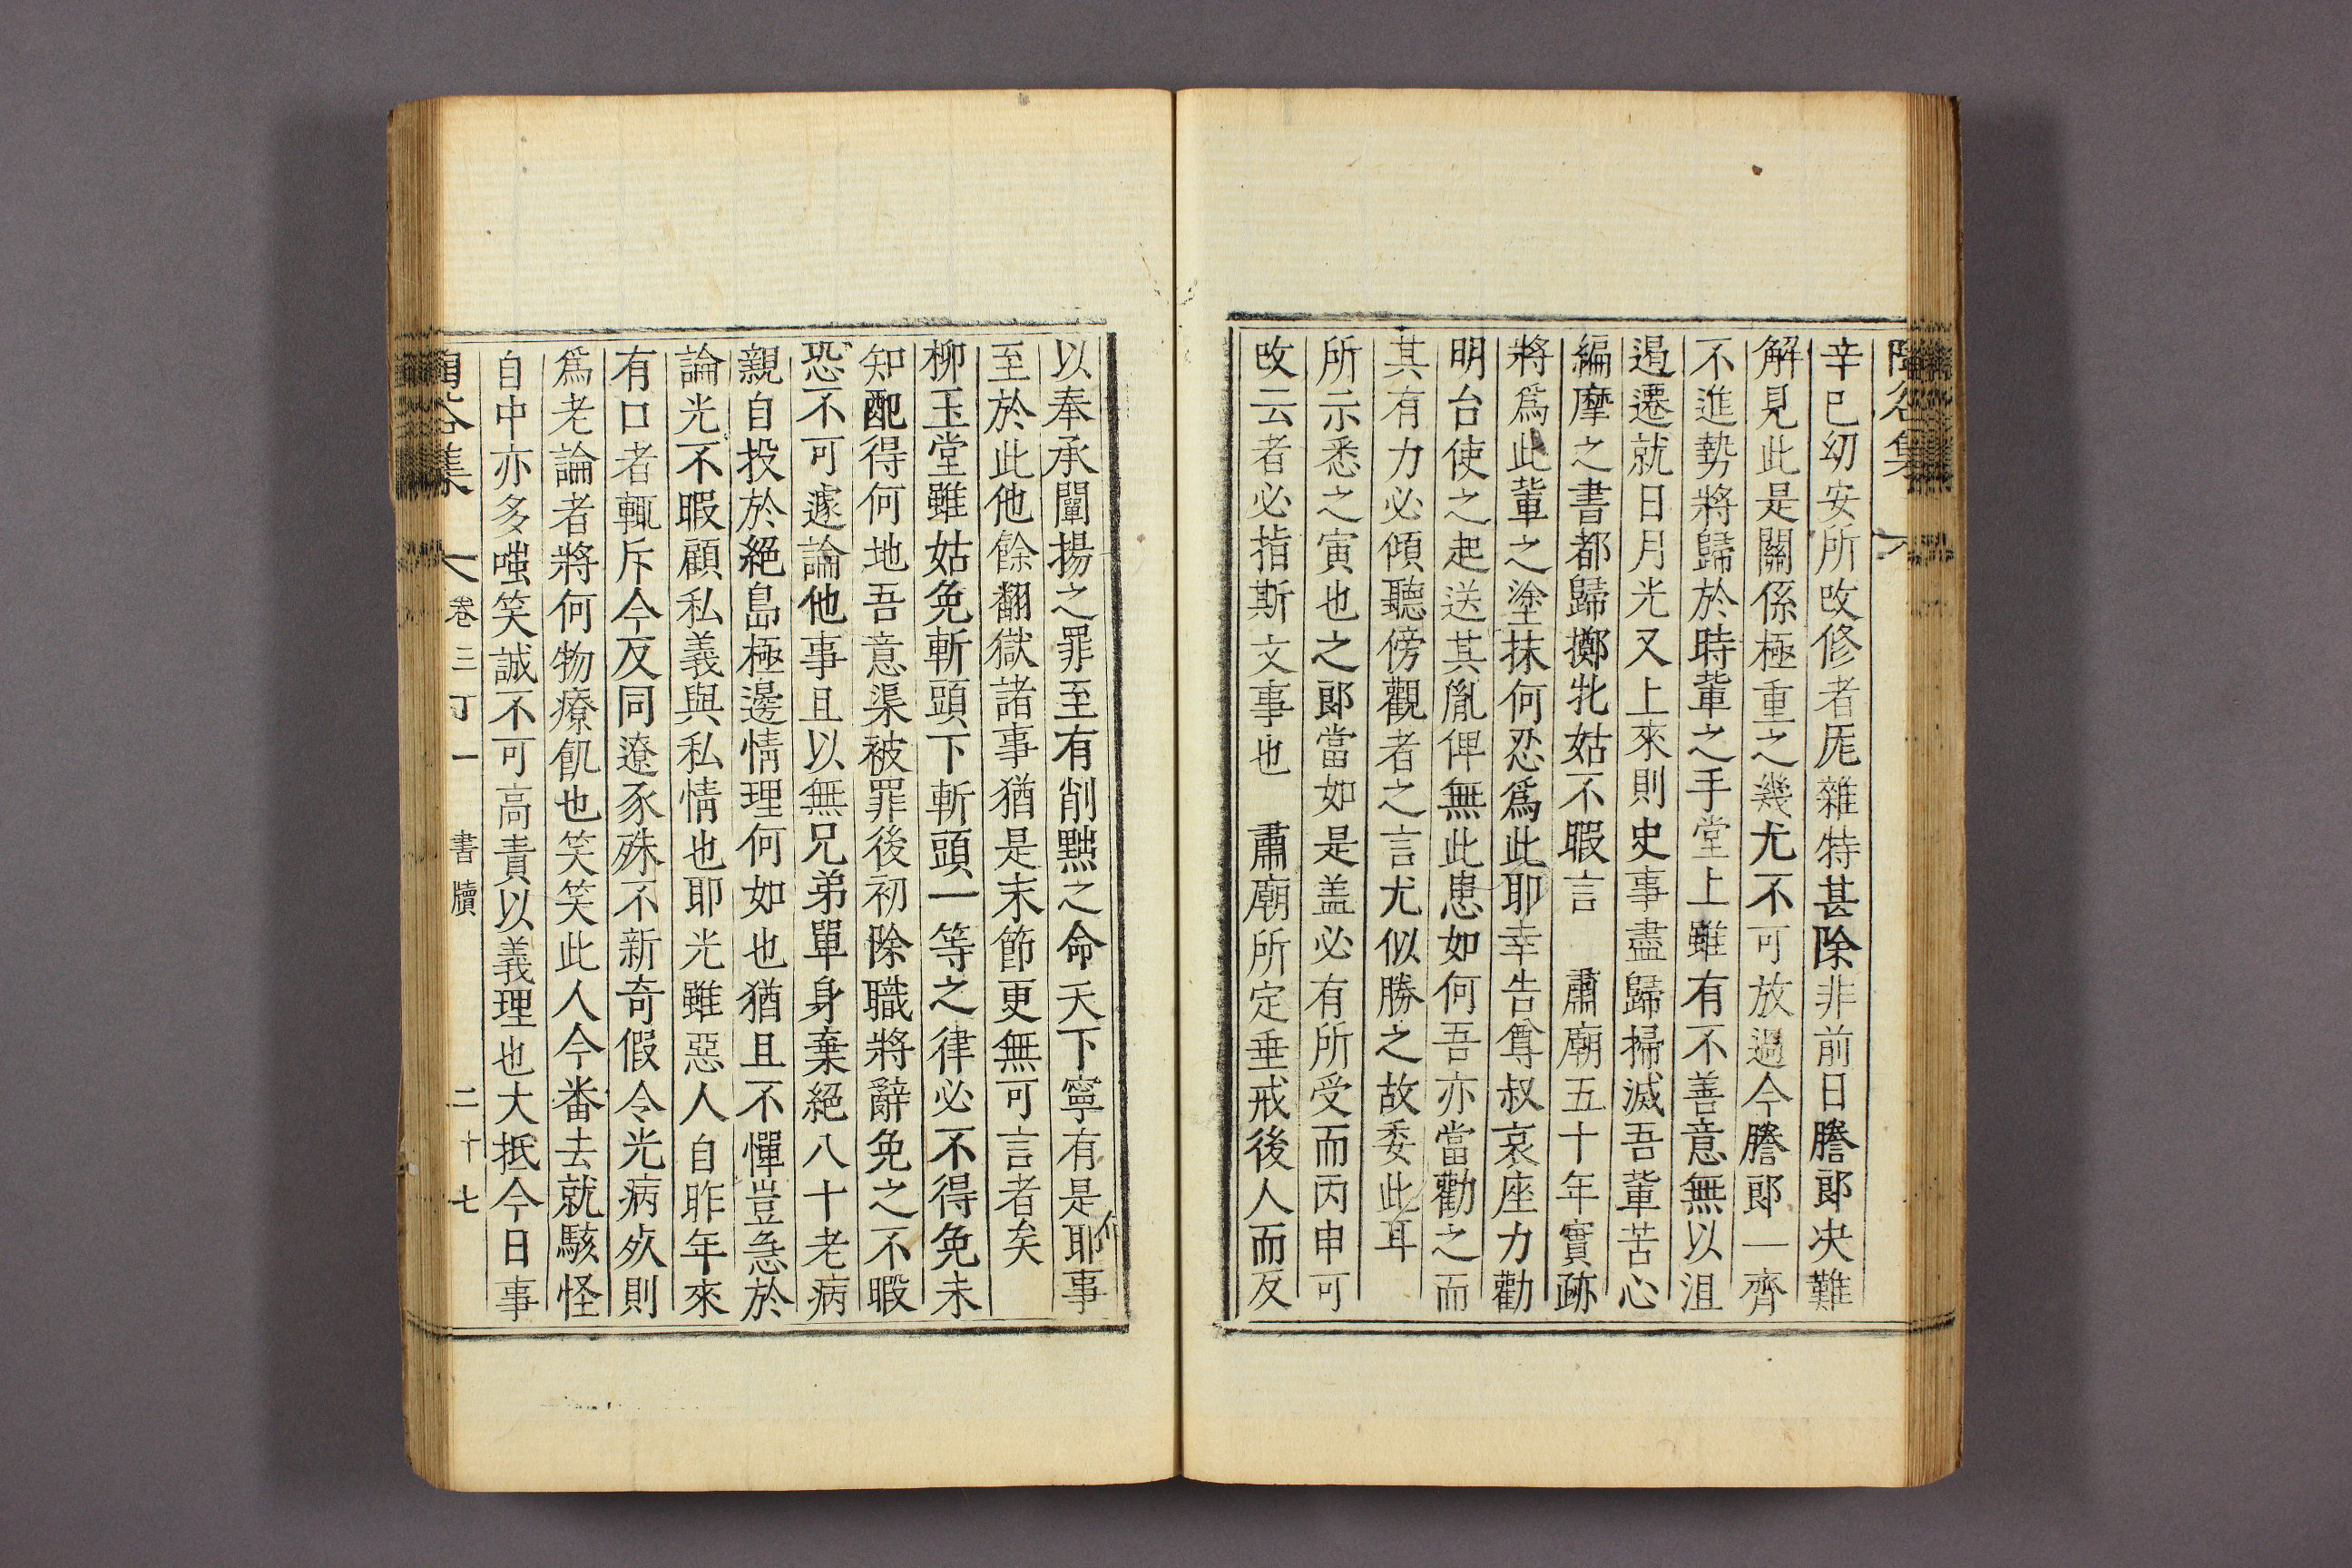 辛巳㓜安所改修者厖雜特甚除非前日謄郞决難
解見此是關係極重之幾尤不可放過今謄郞一齊
不進勢將歸於時輩之手堂上雖有不善意無以沮
遏遷就日月光又上來則史事盡歸掃滅吾輩苦心
編摩之書都歸擲牝姑不暇言　肅廟五十年實跡
將爲此輩之塗抹何忍爲此耶幸告尊叔哀座力勸
明台使之起送其胤俾無此患如何吾亦當勸之而
其有力必傾聽傍觀者之言尤似勝之故委此耳
所示悉之寅也之郞當如是盖必有所受而丙申可
改云者必指斯文事也　肅廟所定垂戒後人而反
以奉承闡揚之罪至有削黜之命天下寧有是耶事
至於此他餘翻獄諸事猶是末節更無可言者矣
柳玉堂雖姑免斬頭下斬頭一等之律必不得免未
知配得何地吾意渠被罪後初除職將辭免之不暇
恐不可遽論他事且以無兄弟單身棄絕八十老病
親自投於絕島極邊情理何如也猶且不憚豈急於
論光不暇顧私義與私情也耶光雖惡人自昨年來
有口者輒斥今反同遼豕殊不新奇假令光病死則
爲老論者將何物療飢也笑笑此人今番去就駭怪
自中亦多嗤笑誠不可高責以義理也大抵今日事
卷三丁一　書牘　二十七